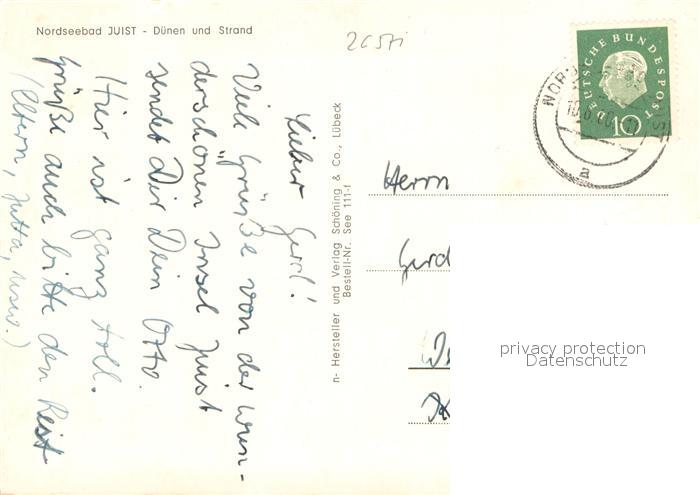 Nordseebad JUIST - Dünen und Strand
2657i
Lieber Gerd!
Viele Grüße von der wun-
derschönen Insel Juist
sendet Dir Dein Otto.
Hier ist ganz toll.
Grüße auch bitte den Rest
(Eltern, Jutta, usw.)
n- Hersteller und Verlag Schöning & Co., Lübeck
Bestell-Nr. See 111-f
DEUTSCHE BUNDESPOST
10
NOR
a
Herrn
Gerd
privacy protection
Datenschutz